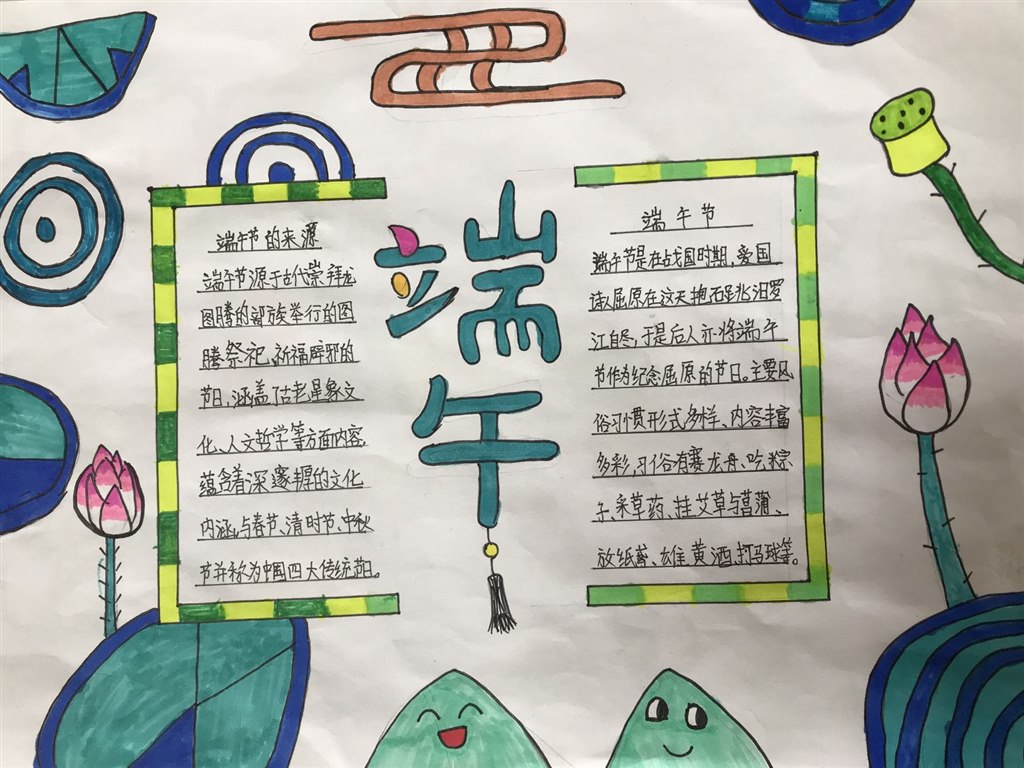 端午节的来源
端午节源于古代崇拜龙
图腾的部族举行的图
腾祭祀、祈福辟邪的
节日,涵盖了古老星象文
化、人文哲学等方面内容,
蕴含着深邃丰厚的文化
内涵,与春节、清明节、中秋
节并称为中国四大传统节日。
端午
端午节
端午节是在战国时期,爱国
诗人屈原在这天抱石跳汨罗
江自尽,于是后人亦将端午
节作为纪念屈原的节日。主要风
俗习惯形式多样、内容丰富
多彩,习俗有赛龙舟、吃粽
子、采草药、挂艾草与菖蒲、
放纸鸢、雄黄酒、打马球等。